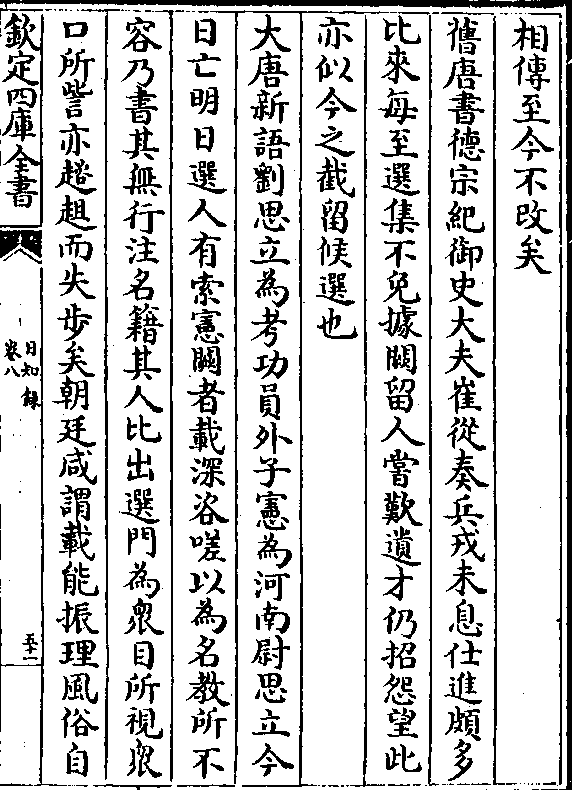 相傳至今不改矣
舊唐書德宗紀御史大夫崔從奏兵戎未息仕進頗多
比來每至選集不免據闕留人嘗歎遺才仍招怨望此
亦似今之截留候選也
大唐新語劉思立為考功員外子憲為河南尉思立今
日亡明日選人有索憲闕者載深咨嗟以為名教所不
容乃書其無行注名籍其人比出選門為衆目所視衆
口所訾亦趑趄而失步矣朝廷咸謂載能振理風俗自
欽定四庫全書
日知錄
卷八
五十一